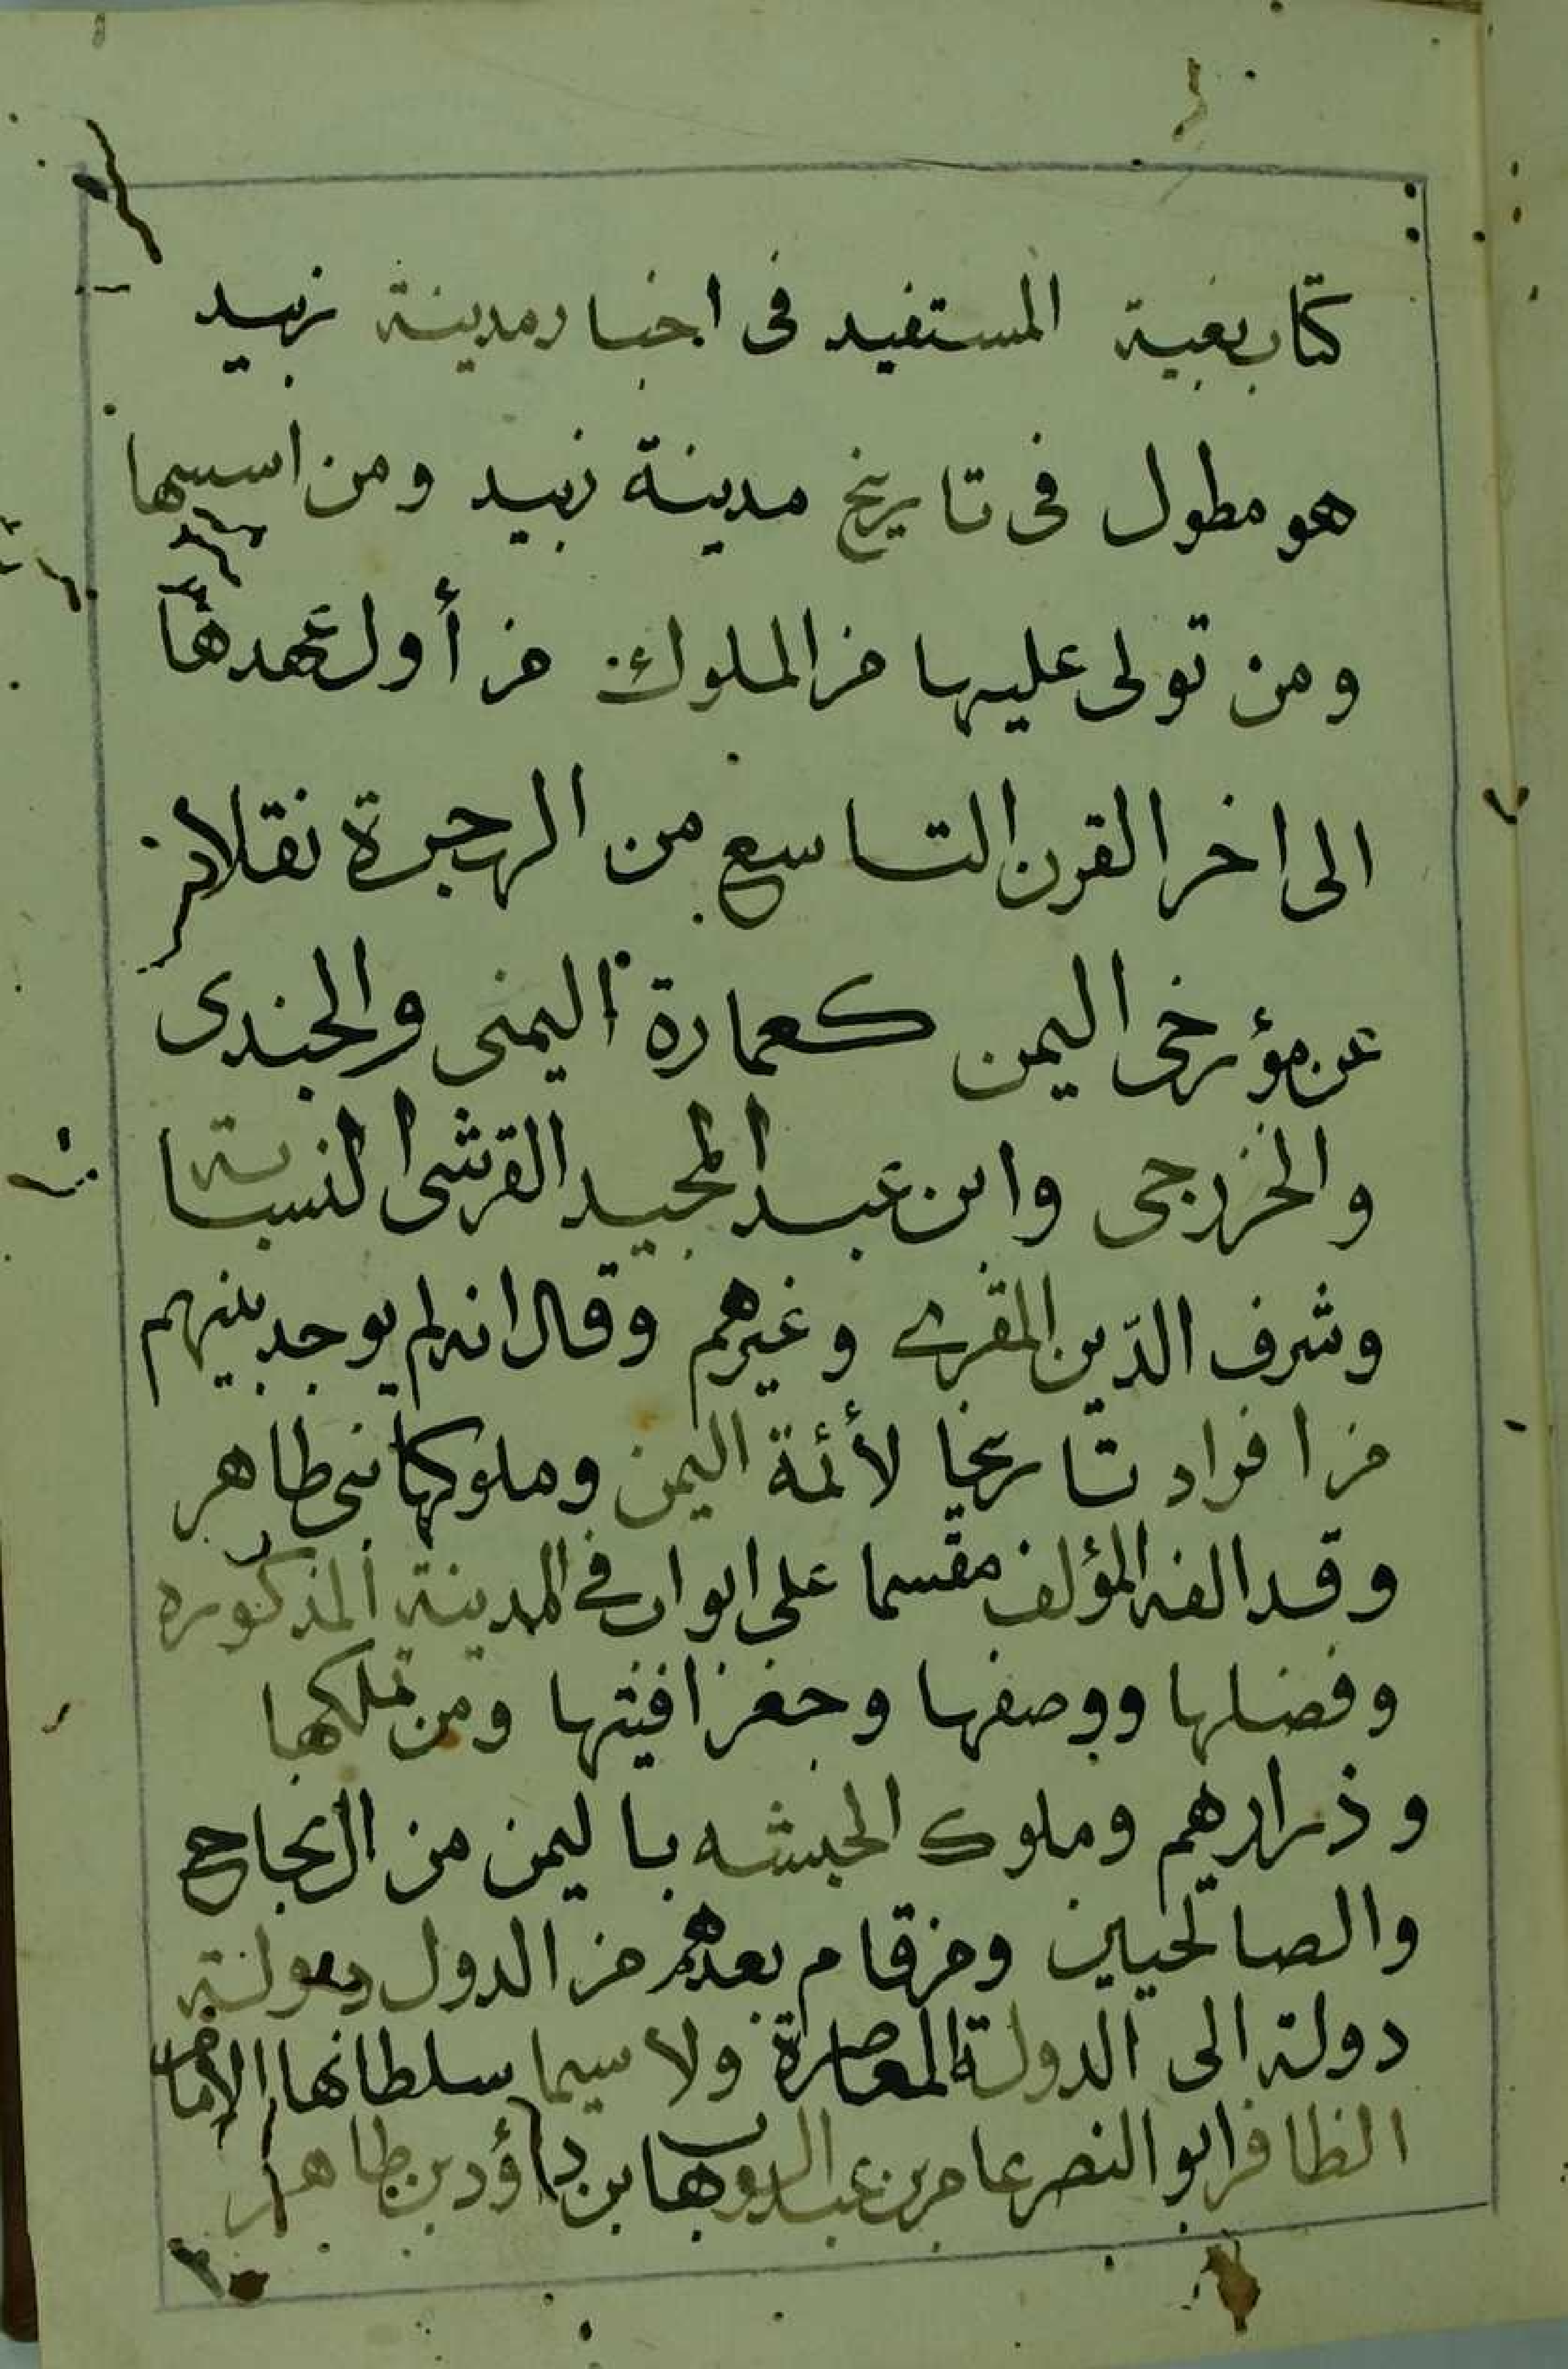 كتاب بغية المستفيد فى اخبار مدينة زبيد
هو مطول فى تاريخ مدينة زبيد ومن اسسها
ومن تولى عليها من الملوك من أول عهدها
الى اخر القرن التاسع من الهجرة نقلا
عن مؤرخى اليمن كعمارة اليمنى والجندى
والخزرجى وابن عبد المجيد القرشى النسابة
وشرف الدّين المقرى وغيرهم وقال انه لم يوجد بينهم
من افراد تاريخا لأئمة اليمن وملوكها بنى طاهر
وقد الفه المؤلف مقسما على ابواب فى المدينة المذكوره
وفضلها ووصفها وجغرافيتها ومن تملكها
وذرارهم وملوك الحبشه باليمن من ال نجاح
والصالحيين ومن قام بعدهم من الدول دولة
دولة الى الدولة المعاصرة ولا سيما سلطانها الامام
الظافر ابو النصر عامر بن عبد الوهاب بن داؤد بن طاهر